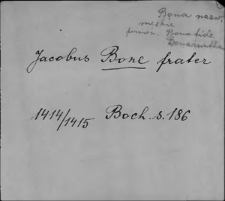 Bona nazw.
męskie
Jacobus Bone frater
1414/1415 Boch. s. 186